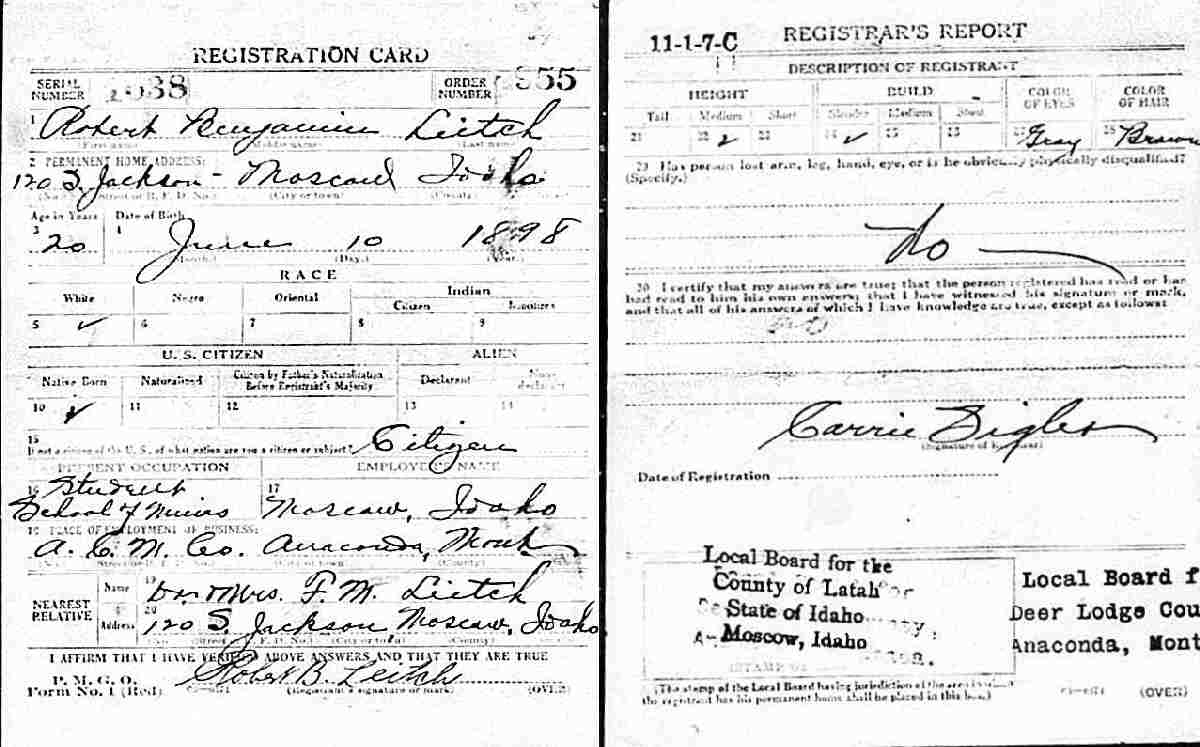 REGISTRATION CARD
SERIAL NUMBER 2038
ORDER NUMBER 955
1 Robert Benjamin Leitch
(First name) (Middle name) (Last name)
2 PERMANENT HOME ADDRESS:
120 S. Jackson - Moscow Idaho
(No.) (Street or R. F. D. No.) (City or town) (County)
Age in Years Date of Birth
3 20 4 June 10 1898
(Month) (Day) (Year)
RACE
White Negro Oriental Indian
Citizen Noncitizen
5 ✓ 6 7 8 9
U. S. CITIZEN ALIEN
Native Born Naturalized Citizen by Father's Naturalization Before Registrant's Majority Declarant Non-declarant
10 ✓ 11 12 13 14
15 If not a citizen of the U. S., of what nation are you a citizen or subject? Citizen
PRESENT OCCUPATION EMPLOYER'S NAME
16 Student School of Mines 17 Moscow, Idaho
18 PLACE OF EMPLOYMENT OR BUSINESS:
A. C. M. Co. Anaconda, Mont
NEAREST RELATIVE
Name 19 Mrs. F. M. Leitch
Address 20 120 S. Jackson Moscow, Idaho
(Street or R. F. D. No.) (City or town) (County)
I AFFIRM THAT I HAVE VERIFIED ABOVE ANSWERS AND THAT THEY ARE TRUE
P. M. G. O.
Form No. 1 (Red) Robert B. Leitch
(Registrant's signature or mark) (OVER)
11-1-7-C REGISTRAR'S REPORT
DESCRIPTION OF REGISTRANT
HEIGHT BUILD COLOR OF EYES COLOR OF HAIR
Tall Medium Short Slender Medium Stout
21 22 ✓ 23 24 ✓ 25 26 27 Gray 28 Brown
29 Has person lost arm, leg, hand, eye, or is he obviously physically disqualified?
(Specify.)
No
30 I certify that my answers are true; that the person registered has read or has
had read to him his own answers; that I have witnessed his signature or mark,
and that all of his answers of which I have knowledge are true, except as follows:
Carrie Sigler
(Signature of Registrar)
Date of Registration
Local Board for the
County of Latah
State of Idaho
Moscow, Idaho
STAMP OF
Local Board f
Deer Lodge Cou
Anaconda, Mont
(The stamp of the Local Board having jurisdiction of the area in which
the registrant has his permanent home shall be placed in this box.)
(OVER)